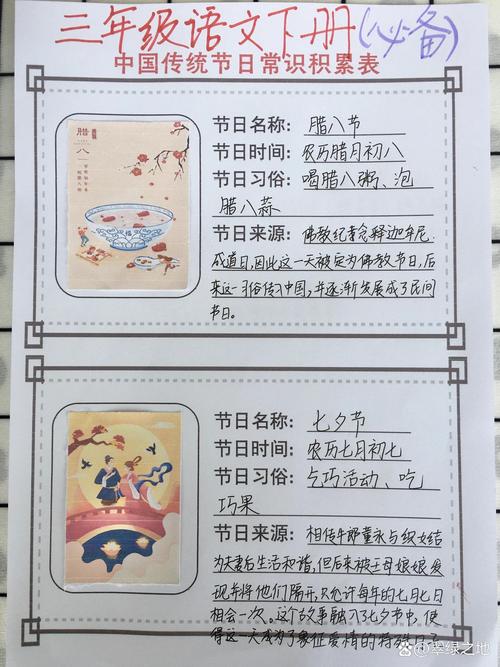 三年级语文下册(必备)
中国传统节日常识积累表
腊
八
节日名称：腊八节
节日时间：农历腊月初八
节日习俗：喝腊八粥、泡
腊八蒜
节日来源：佛教纪念释迦牟尼
成道日，因此这一天被定为佛教节日，后
来这一习俗传习中国，并逐渐发展成了民间
节日。
节日名称：七夕节
节日时间：农历七月初七
节日习俗：乞巧活动、吃
巧果
节日来源：相传牛郎董永与织女结
为夫妻后生活和谐，但后来被王母娘娘发
现并将他们隔开，只允许每年的七月七日
相会一次。这个故事融入了七夕节中，使
得这一天成为了象征爱情的特殊日子
翠绿之地